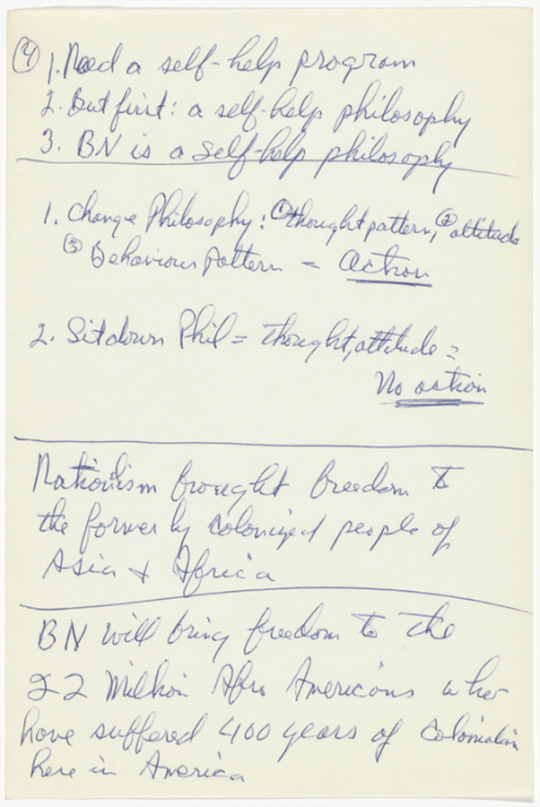 ④ 1. Need a self-help program
2. But first: a self-help philosophy
3. BN is a self-help philosophy
1. Change Philosophy: ① thought pattern, ② attitude
③ Behaviour Pattern = Action
2. Sitdown Phil = thought, attitude =
No action
Nationlism brought freedom to
the formerly colonized people of
Asia & Africa
BN will bring freedom to the
22 Million Afro Americans who
have suffered 400 years of colonialism
here in America